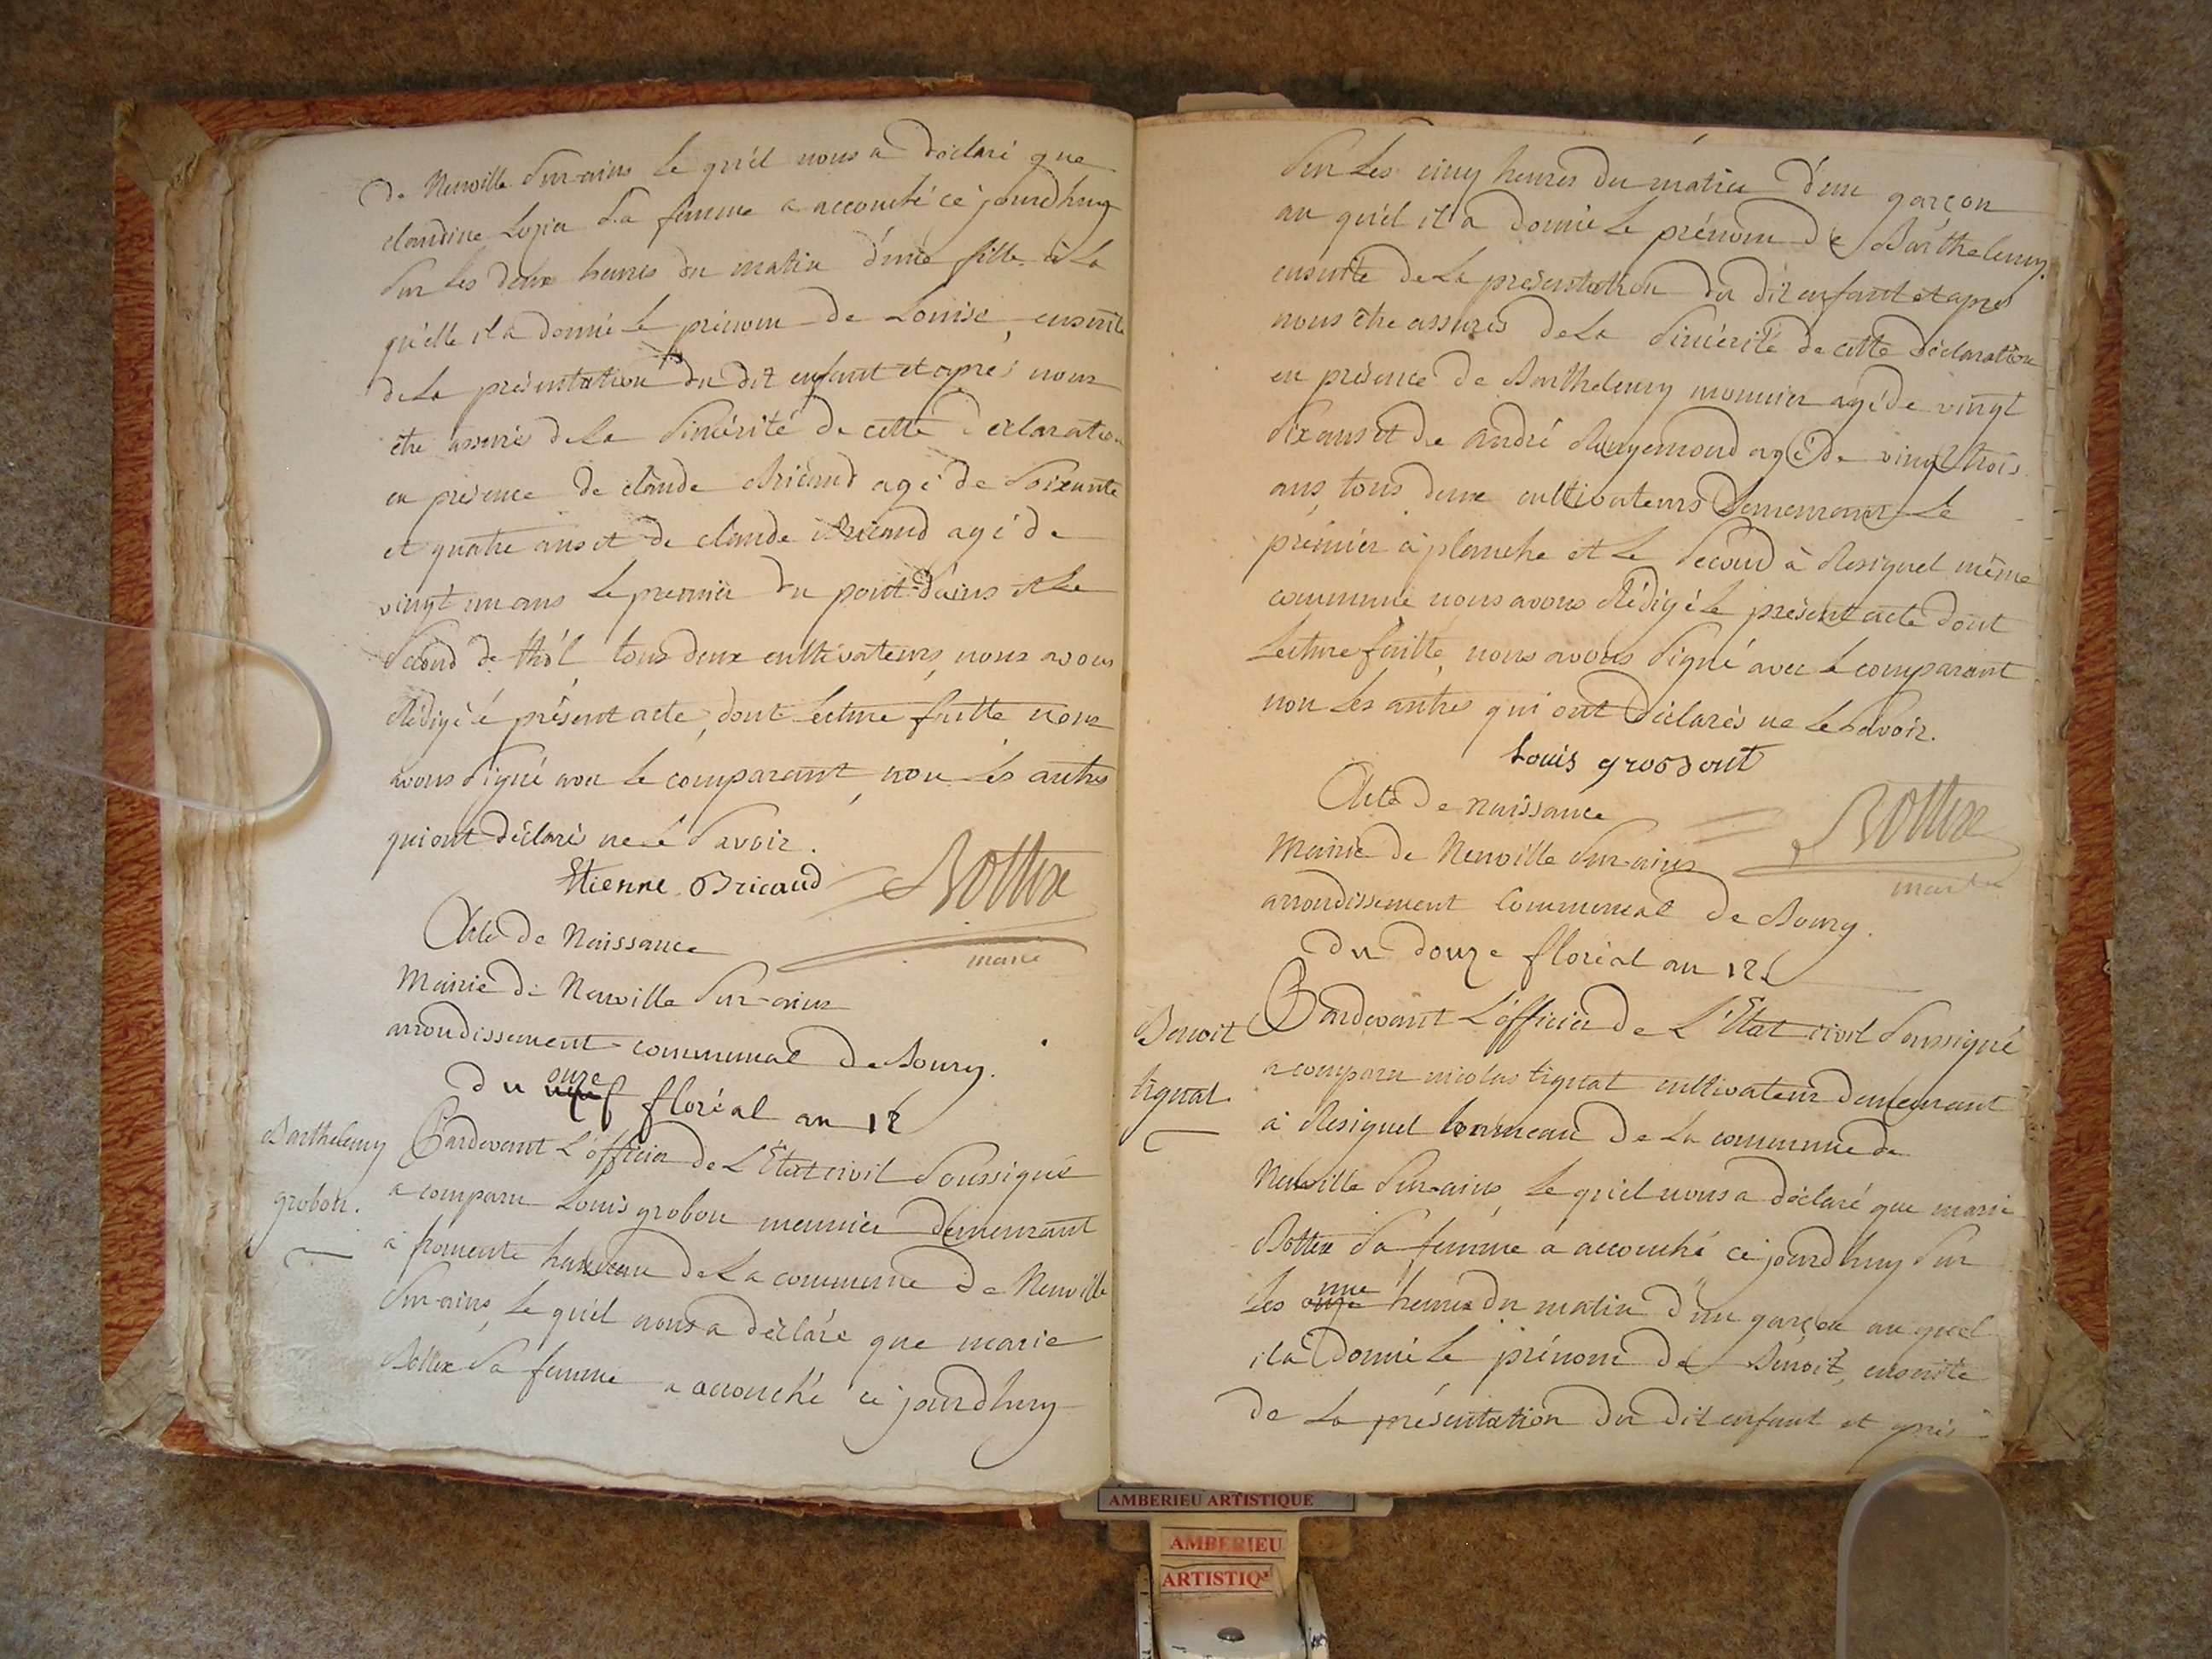 de Neuville Sur-ains le quél nous a déclaré que
claudine Sa femme a accouché ce jourdhuy
Sur les deux heures du matin d'une fille à La
quélle il a donné le prénom de Louise, ensuite
de La présentation du dit enfant et aprés nous
étre assurés de La Sincérité de cette declaration
en présence de claude Bricaud agé de Soixante
et quatre ans et de claude Bricaud agé de
vingt un ans le premier du pont-d'ains et Le
Second de thol, tous deux cultivateurs, nous avons
Rédigé é présent acte, dont Lecture faitte, nous
avons Signé avec Le comparant, non Les autres
qui ont déclarés ne Le Savoir.
Etienne Bricaud Bottex
maire
Acte de Naissance
Mairie de Neuville Sur-ains
arrondissement communal de Bourg.
du neuf onze floréal an 12
Barthelemy
grobon.
Pardevant L'officier de L'Etat civil Soussigné
a comparu Louis grobon meunier demeurant
à fromente hameau de La commune de Neuville
Sur-ains, Le quél nous a déclaré que marie
Bottex Sa femme a accouché ce jourdhuy
Sur Les cinq heures du matin d'un garçon
au quél il a donné Le prénom de Barthelemy.
ensuite de La présentation du dit enfant et apres
nous étre assurés de La Sincérité de cette déclaration
en présence de Barthelemy monnier agé de vingt
Six ans et de André Rougemond agé de vingt trois
ans, tous deux cultivateurs demeurant Le
prémier à planche et Le Second à Resignel méme
commune nous avons Rédigé Le présent acte dont
Lecture faitte, nous avons Signé avec Le comparant
non Les autres qui ont déclarés ne Le Savoir.
Louis grosbont
Bottex
maire
Acte de naissance
Mairie de Neuville Sur-ains
arrondissement Communal de Bourg.
du douze floréal an 12
Benoit
tignat.
Pardevant L'officier de L'Etat civil Soussigné
a comparu nicolas tignat cultivateur demeurant
à Resignel hameau de La commune de
Neuville Sur-ains, Le quél nous a déclaré que marie
Bottex Sa femme a accouché ce jourdhuy Sur
Les onze une heures du matin d'un garçon au quel
il a donné Le prénom de Benoit, ensuite
de La présentation du dit enfant et aprés
AMBERIEU ARTISTIQUE
AMBERIEU
ARTISTIQ